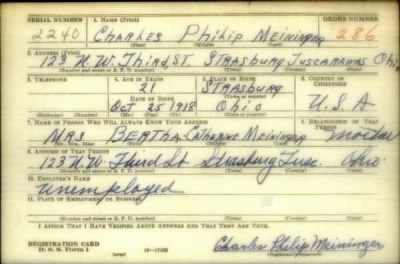 SERIAL NUMBER 1. NAME (Print) ORDER NUMBER
2240 CHARLES PHILIP MEININGER 286
(First) (Middle) (Last)
2. ADDRESS (Print)
123 N.W. THIRD ST. STRASBURG TUSCARAWAS OHIO
(Number and street or R. F. D. number) (Town) (County) (State)
3. TELEPHONE 4. AGE IN YEARS 5. PLACE OF BIRTH 6. COUNTRY OF CITIZENSHIP
21 STRASBURG
DATE OF BIRTH (Town or county)
OCT 25 1918 OHIO U.S.A
(Exchange) (Number) (Mo.) (Day) (Yr.) (State or country)
7. NAME OF PERSON WHO WILL ALWAYS KNOW YOUR ADDRESS 8. RELATIONSHIP OF THAT PERSON
MRS BERTHA CATHERINE MEININGER mother
(Mr., Mrs., Miss) (First) (Middle) (Last)
9. ADDRESS OF THAT PERSON
123 N.W. Third St. Strasburg Tusc. Ohio
(Number and street or R. F. D. number) (Town) (County) (State)
10. EMPLOYER'S NAME
unemployed
11. PLACE OF EMPLOYMENT OR BUSINESS
(Number and street or R. F. D. number) (Town) (County) (State)
I AFFIRM THAT I HAVE VERIFIED ABOVE ANSWERS AND THAT THEY ARE TRUE.
REGISTRATION CARD
D. S. S. Form 1 (over) Charles Philip Meininger